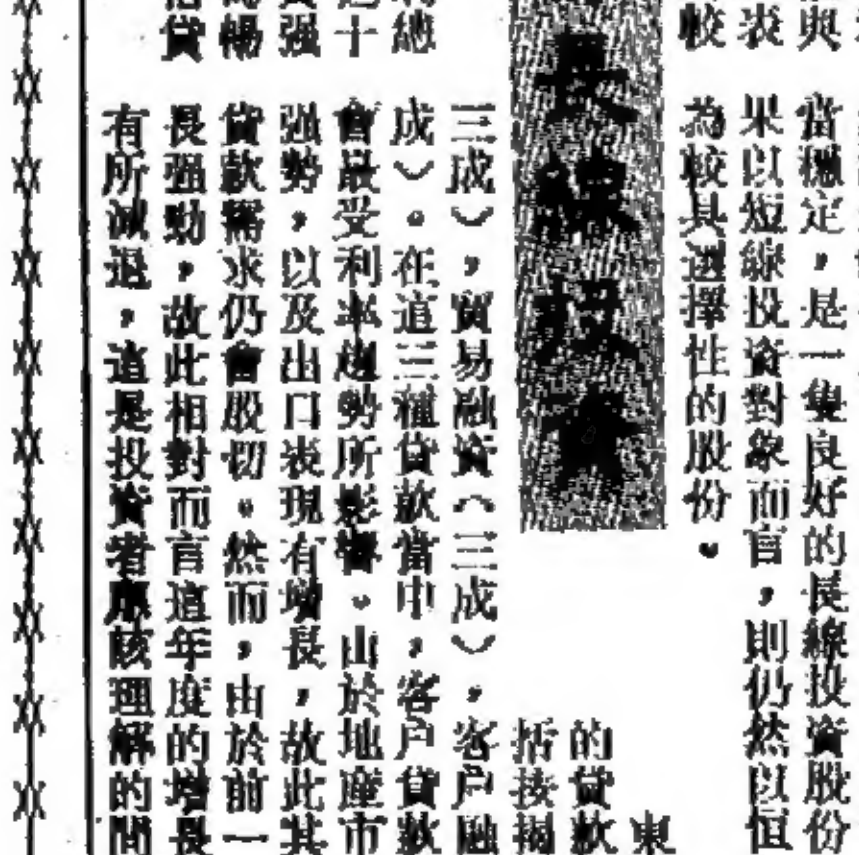 與 當穩定，是一隻良好的長線投資股份
表 果以短線投資對象而言，則仍然以恒
較 為較具選擇性的股份。
東
的貸款
括接揭
總 三成），貿易融資（三成），客戶融
成）。在這三種貸款當中，客戶貸款
十 會最受利率趨勢所影響。由於地產市
強 强勢，以及出口表現有增長，故此其
暢 貸款需求仍會殷切。然而，由於前一
貸 長强勁，故此相對而言這年度的增長
有所減退，這是投資者應該理解的問